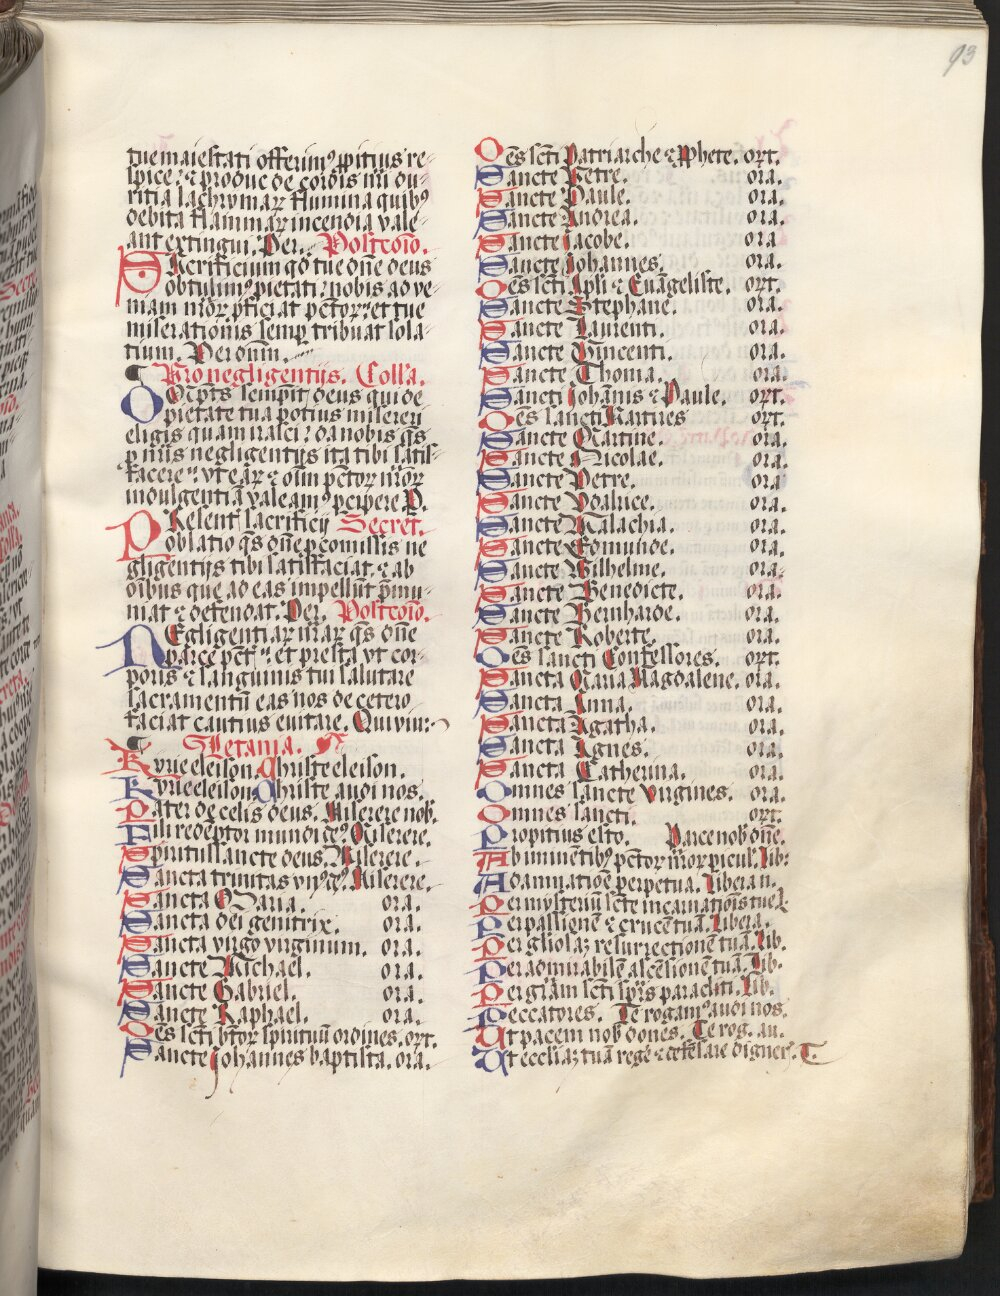 93
tue maiestati offerim⁹ ꝓpitius re-
spice: ⁊ produc de cordis nr̄i du-
ritia lachrymaꝝ flumina quib⁹
debita flammaꝝ incendia vale-
ant extingui. Per. Postcōio.
Sacrificium qd̄ tue dn̄e deus
obtulim⁹ pietati: nobis ad ve-
niam nr̄oꝝ ꝓficiat pctōꝝ: et tue
miserationis semꝑ tribuat sola-
tium. Per dn̄m.
¶ Pro negligentijs. Coll'a.
Om̄ps sempit̄ deus qui de
pietate tua potius misereri
eligis quam irasci: da nobis q̄s
ꝓ nr̄is negligentijs ita tibi satis-
facere: vt eaꝝ ⁊ oīm pctōꝝ nr̄oꝝ
indulgentiā valeam⁹ ꝑcipere P.
Presens sacrificij Secret.
oblatio q̄s dn̄e ꝓ comissis ne-
gligentijs tibi satisfaciat: ⁊ ab
oībus que ad eas impellūt p̄mu-
niat ⁊ defendat. Per. Postcōio.
Negligentiaꝝ nr̄aꝝ q̄s dn̄e
parce pct̄is: et presta vt cor-
poris ⁊ sanguinis tui salutare
sacramentū eas nos de cetero
faciat cautius euitare. Qui viu:
¶ Letania.
Kyrieeleison. Christeeleison.
Kyrieeleison. Christe audi nos.
Pater de celis deus. Miserere nob.
Fili redēptor mundi de⁹ Miserere.
Spiritussancte deus. Miserere.
Sancta trinitas vn⁹ de⁹. Miserere.
Sancta Maria. ora.
Sancta dei genitrix. ora.
Sancta virgo virginum. ora.
Sancte Michael. ora.
Sancte Gabriel. ora.
Sancte Raphael. ora.
Oēs sct̄i bt̄oꝝ spirituū ordines. ort.
Sancte Johannes baptista. ora.
Oēs sct̄i Patriarche ⁊ Ꝓphete. ort.
Sancte Petre. ora.
Sancte Paule. ora.
Sancte Andrea. ora.
Sancte Jacobe. ora.
Sancte Johannes. ora.
Oēs sct̄i Apl̄i ⁊ Euāgeliste. ort.
Sancte Stephane. ora.
Sancte Laurenti. ora.
Sancte Vincenti. ora.
Sancte Thoma. ora.
Sancti Johānis ⁊ Paule. ort.
Oēs sancti Martires ort.
Sancte Martine. ora.
Sancte Nicolae. ora.
Sancte Petre. ora
Sancte
Sancte Malachia. ora.
Sancte Edmunde. ora.
Sancte Wilhelme. ora.
Sancte Benedicte. ora.
Sancte Bernharde. ora.
Sancte Roberte. ora.
Oēs sancti Confessores. ort.
Sancta Maria Magdalene. ora.
Sancta Anna. ora.
Sancta Agatha. ora.
Sancta Agnes. ora.
Sancta Catherina. ora.
Omnes sancte virgines. ora.
Omnes sancti. ort.
Propitius esto. Parce nob dn̄e.
Ab iminētib⁹ pctōꝝ nr̄oꝝ picul. lib:
A damnatiōe perpetua. Libera n.
Per mysteriū sct̄e incarnatiōis tue l.
Per passionē ⁊ crucē tuā. Libera.
Per gl̓iosaꝫ resurrectionē tuā. Lib.
Per admirabilē ascēsionē tuā. Lib.
Per gr̄am sct̄i spūs paracliti. Lib.
Peccatores. Te rogam⁹ audi nos.
Ut pacem nob dones. Te rog. au.
Ut eccl̓iaꝫ tuā regē ⁊ cōseruare digner̄. T.